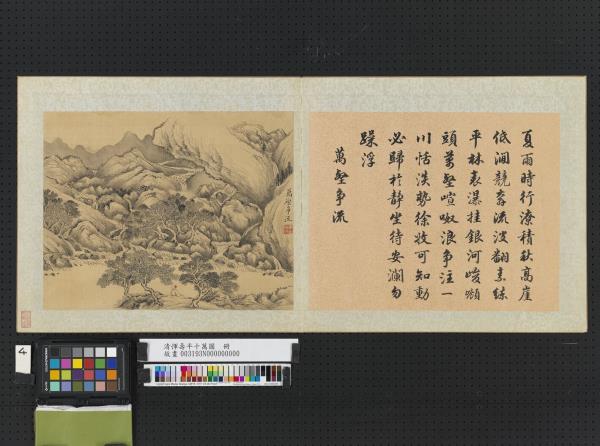 夏雨時行潦積秋高崖
低澗競奔流波翻素練
平林表瀑挂銀河峻嶺
頭萬壑喧豗浪争注一
川恬淡勢徐收可知動
必歸於靜坐待安瀾勿
躁浮
萬壑争流
萬壑争流
清惲壽平十萬圖 冊
故畫 003193N000000000
4